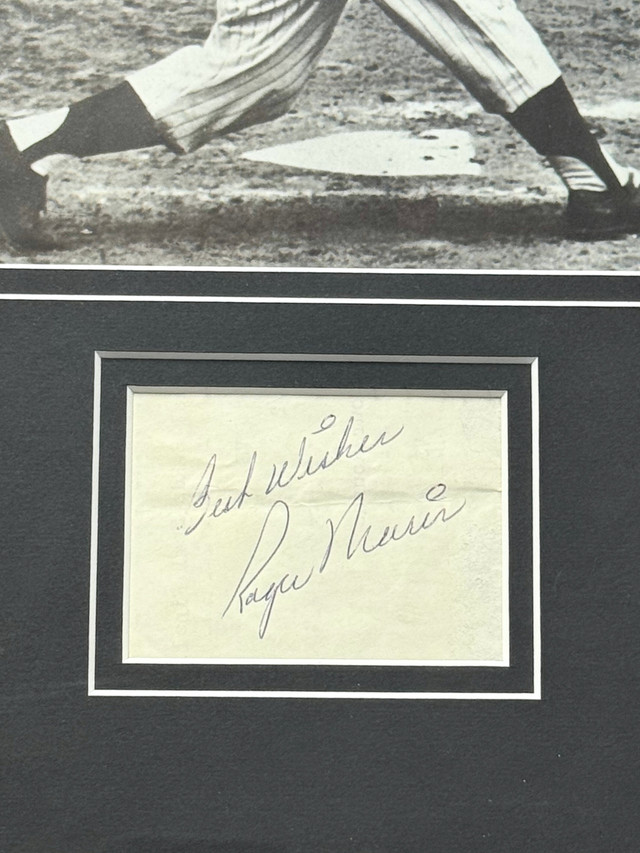 Best Wishes
Roger Maris